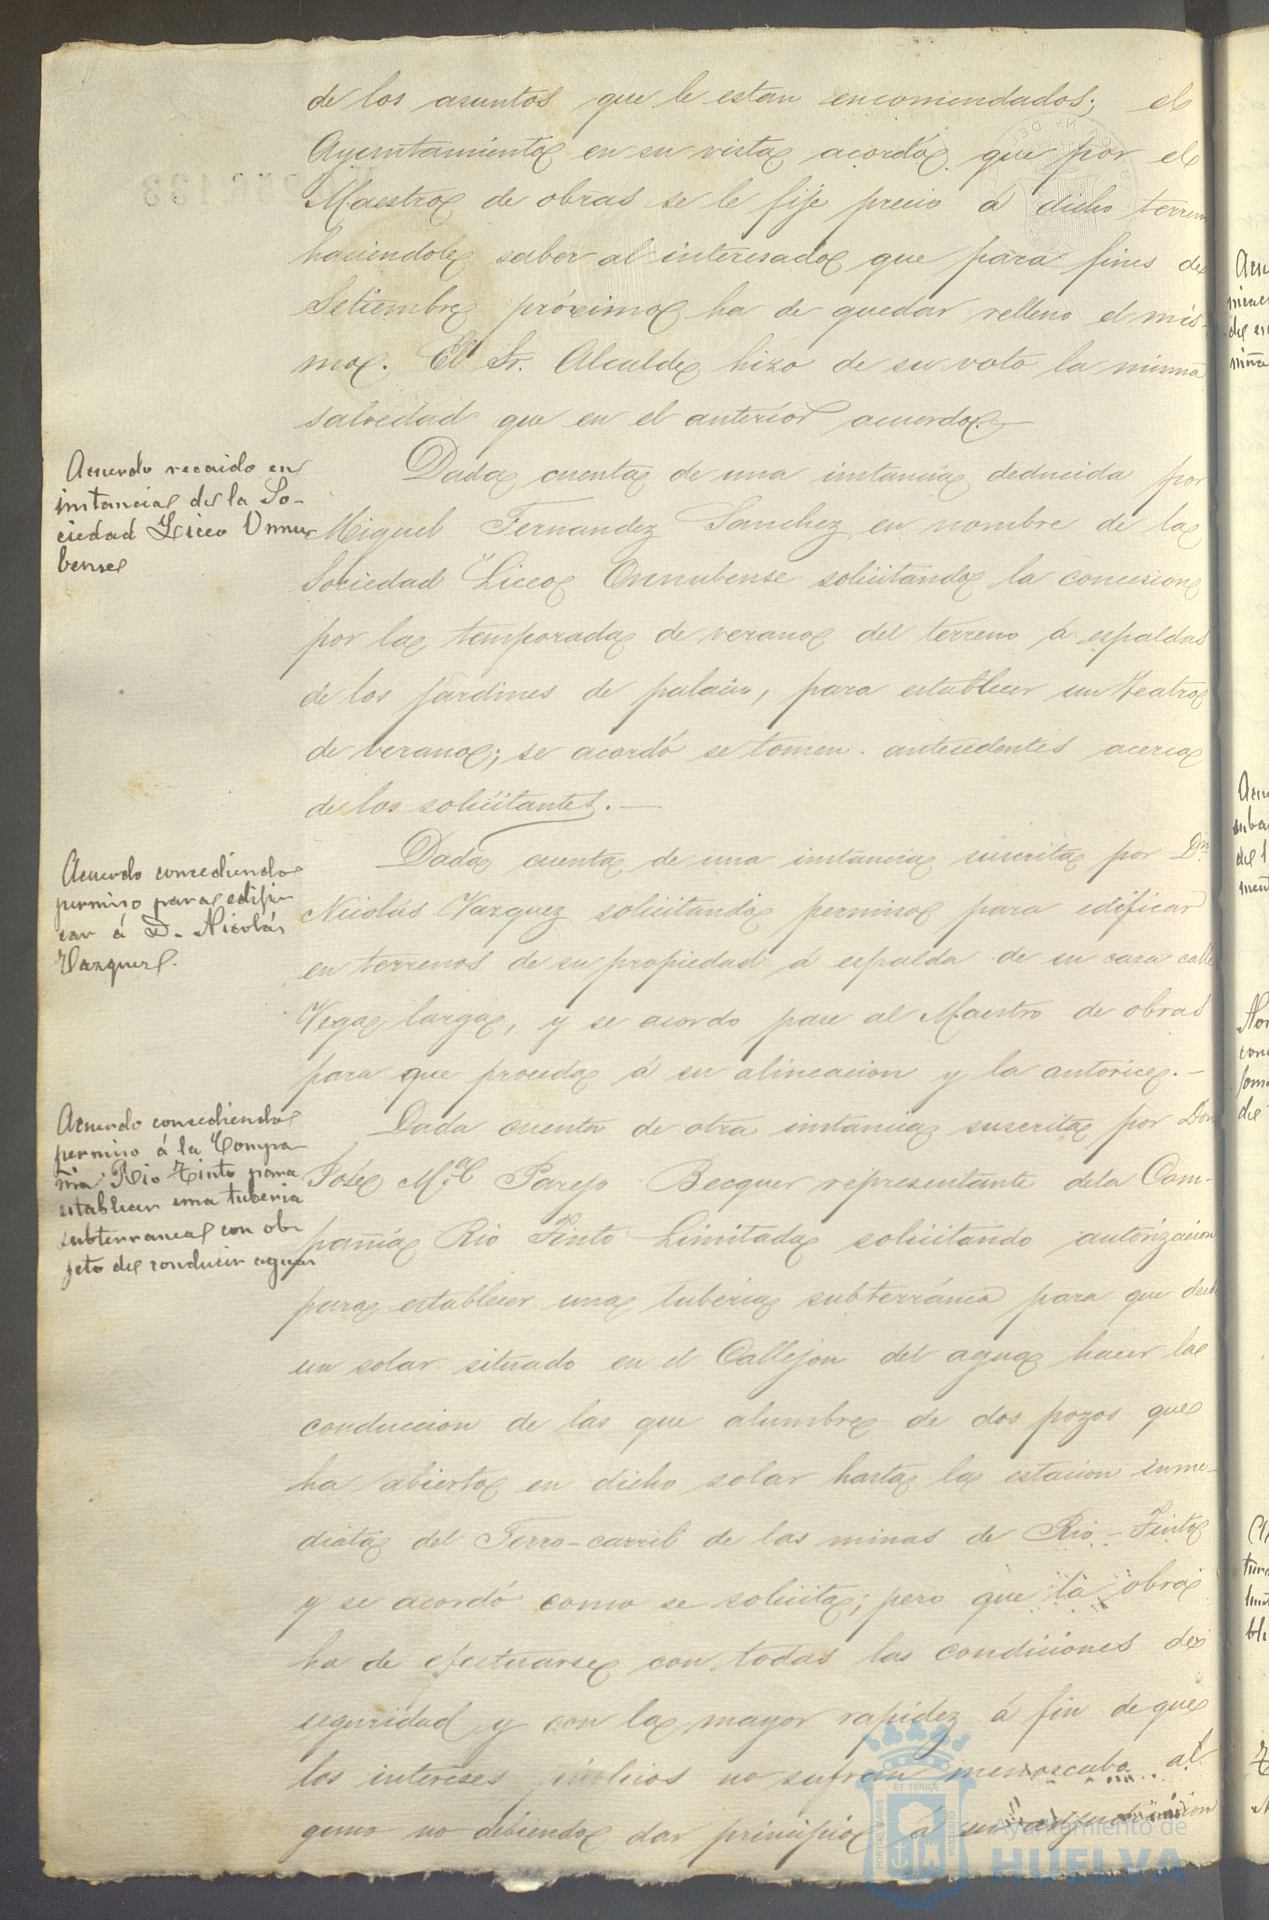 de los asuntos que le estan encomendados; el
Ayuntamiento en su vista acordó que por el
Maestro de obras se le fije precio á dicho terreno
haciendole saber al interesado que para fines de
Setiembre próximo ha de quedar relleno el mis-
mo. El Sr. Alcalde hizo de su voto la misma
salvedad que en el anterior acuerdo.
Acuerdo recaido en
instancia de la So-
ciedad Liceo Onnu-
bense
Dada cuenta de una instancia deducida por
Miguel Fernandez Sanchez en nombre de la
Sociedad "Liceo Onnubense solicitando la concesion
por la temporada de verano del terreno á espaldas
de los jardines de palacio, para establecer un Teatro
de verano; se acordó se tomen antecedentes acerca
de los solicitantes.
Acuerdo consediendo
permiso para edifi-
car á D. Nicolás
Vazquez.
Dada cuenta de una instancia suscrita por Dn
Nicolás Vazquez solicitando permiso para edificar
en terrenos de su propiedad á espalda de su casa calle
Vega larga, y se acordo pase al Maestro de obras
para que proceda á su alineacion y la autorice.
Acuerdo consediendo
permiso á la Compa-
ñia Rio Tinto para
establecer una tuberia
subterranea con ob-
jeto de conducir aguas
Dada cuenta de otra instancia suscrita por Don
José Mª Parejo Becquer representante dela Com-
pañia Rio Tinto Limitada solicitando autorizacion
para establecer una tuberia subterránea para que desde
un solar situado en el Callejon del agua hacer la
conduccion de las que alumbre de dos pozos que
ha abierto en dicho solar hasta la estacion inme-
diata del Ferro-carril de las minas de Rio-Tinto
y se acordó como se solicita; pero que la obra
ha de efectuarse con todas las condiciones de
seguridad y con la mayor rapidez á fin de que
los intereses públicos no sufran menoscabo al
guno no debiendo dar principio á
Ayuntamiento de
HUELVA